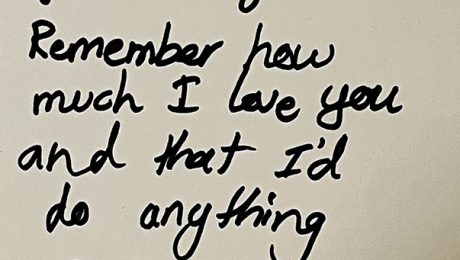 Remember how
much I love you
and that I'd
do anything